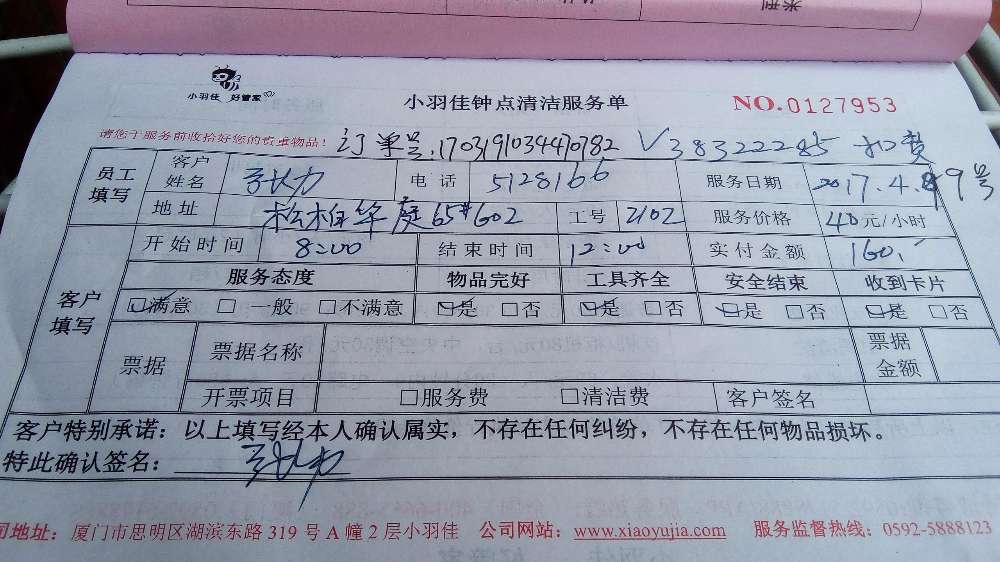 类型
小羽佳 好管家
小羽佳钟点清洁服务单
NO.0127953
请您于服务前收拾好您的贵重物品！
订单号:170319103440782 V38322285 扣费
员工填写 客户姓名 电话 5128166 服务日期 2017.4.9号
地址 松柏华庭65#602 工号 2102 服务价格 40元/小时
客户填写 开始时间 8:00 结束时间 12:00 实付金额 160.
服务态度 物品完好 工具齐全 安全结束 收到卡片
☑满意 □一般 □不满意 ☑是 □否 ☑是 □否 ☑是 □否 ☑是 □否
票据 票据名称 票据金额
开票项目 □服务费 □清洁费 客户签名
客户特别承诺：以上填写经本人确认属实，不存在任何纠纷，不存在任何物品损坏。
特此确认签名：
司地址：厦门市思明区湖滨东路 319 号 A 幢 2 层小羽佳 公司网站：www.xiaoyujia.com 服务监督热线：0592-5888123